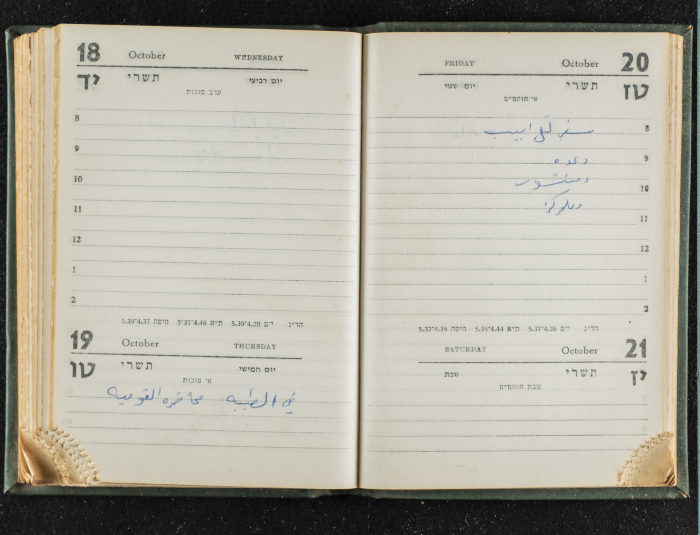 18 October WEDNESDAY
יד תשרי יום רביעי
ערב סוכות
8
9
10
11
12
1
2
הדי״נ י״ם 5.39 4.28 ת״א 5.37 4.46 חיפה 5.39 4.37
19 October THURSDAY
טו תשרי יום חמישי
א׳ סוכות
في الطيبه محاضره القوميه
FRIDAY October 20
טז תשרי יום ששי
א׳ חוהמ״ס
8 سفر لتل ابيب
9 دعوه
10
11
12
1
2
הדי״נ י״ם 5.31 4.26 ת״א 5.35 4.44 חיפה 5.37 4.35
SATURDAY October 21
יז תשרי שבת
שבת חוהמ״ס